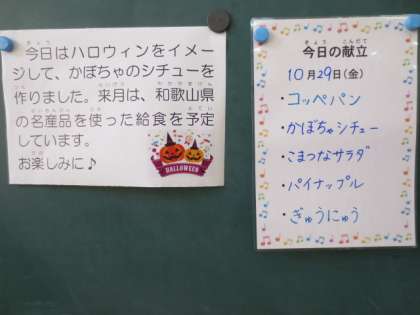 今日はハロウィンをイメー
ジして、かぼちゃのシチューを
作りました。来月は、和歌山県
の名産品を使った給食を予定
しています。
お楽しみに♪
HALLOWEEN
今日の献立
10月29日(金)
・コッペパン
・かぼちゃシチュー
・こまつなサラダ
・パイナップル
・ぎゅうにゅう